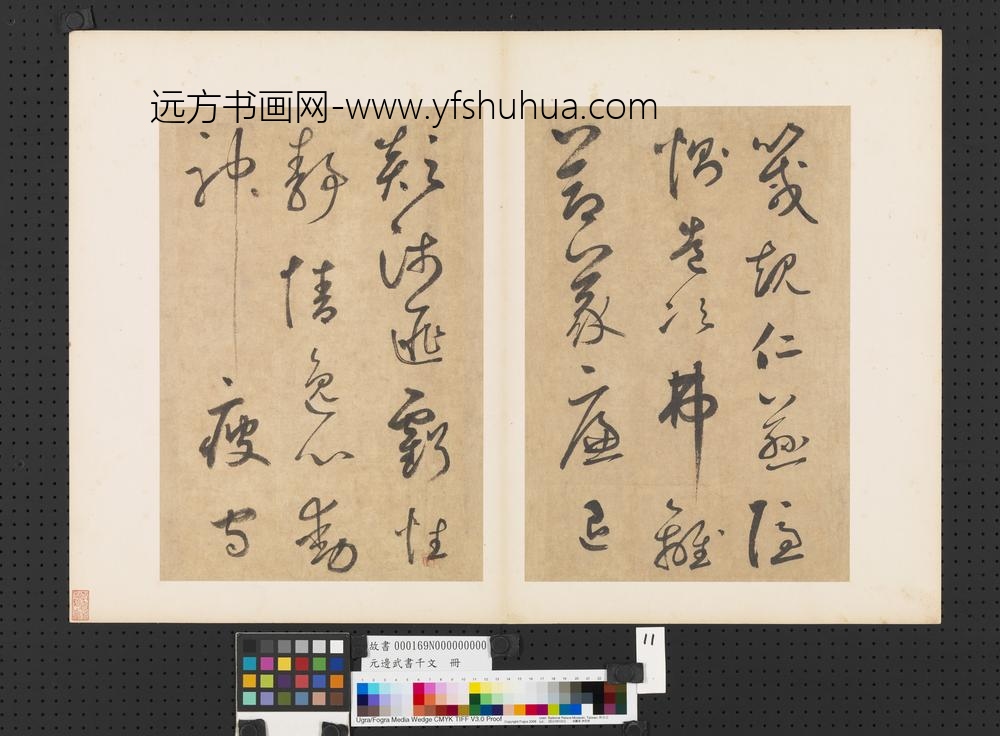 远方书画网-www.yfshuhua.com
箴規仁慈隱
惻造次弗離
節義廉退
顛沛匪虧性
靜情逸心動
神疲守
11
故書 000169N000000000
元邊武書千文 冊
Ugra/Fogra Media Wedge CMYK TIFF V3.0 Proof